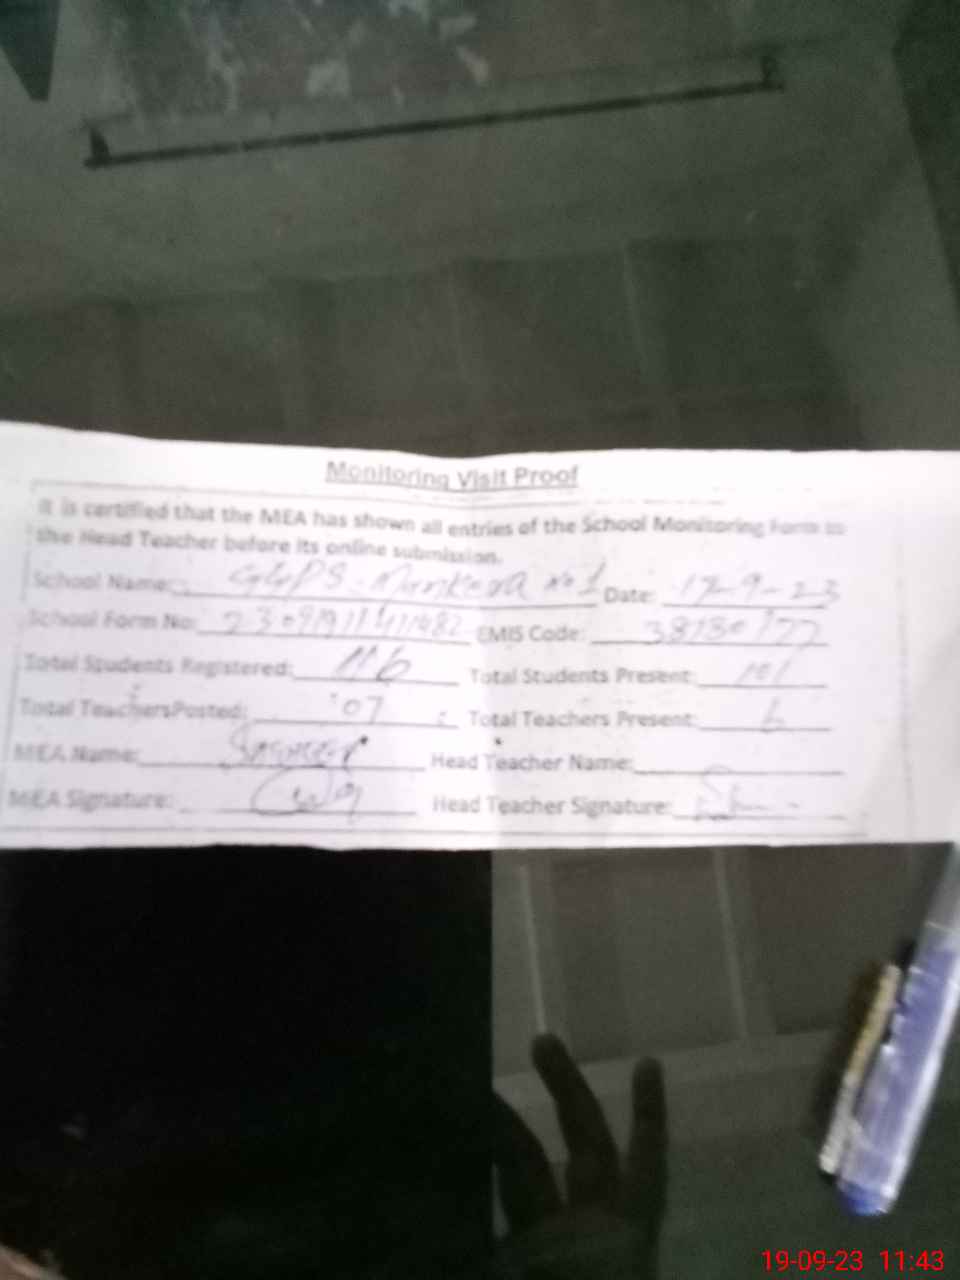 Monitoring Visit Proof
It is certified that the MEA has shown all entries of the School Monitoring Form to
the Head Teacher before its online submission.
School Name: GGPS. Mankera No 1 Date: -9-23
School Form No: EMIS Code:
Total Students Registered: 116 Total Students Present: 101
Total Teachers Posted: 07 Total Teachers Present: 6
MEA Name: Head Teacher Name:
MEA Signature: Head Teacher Signature:
19-09-23 11:43